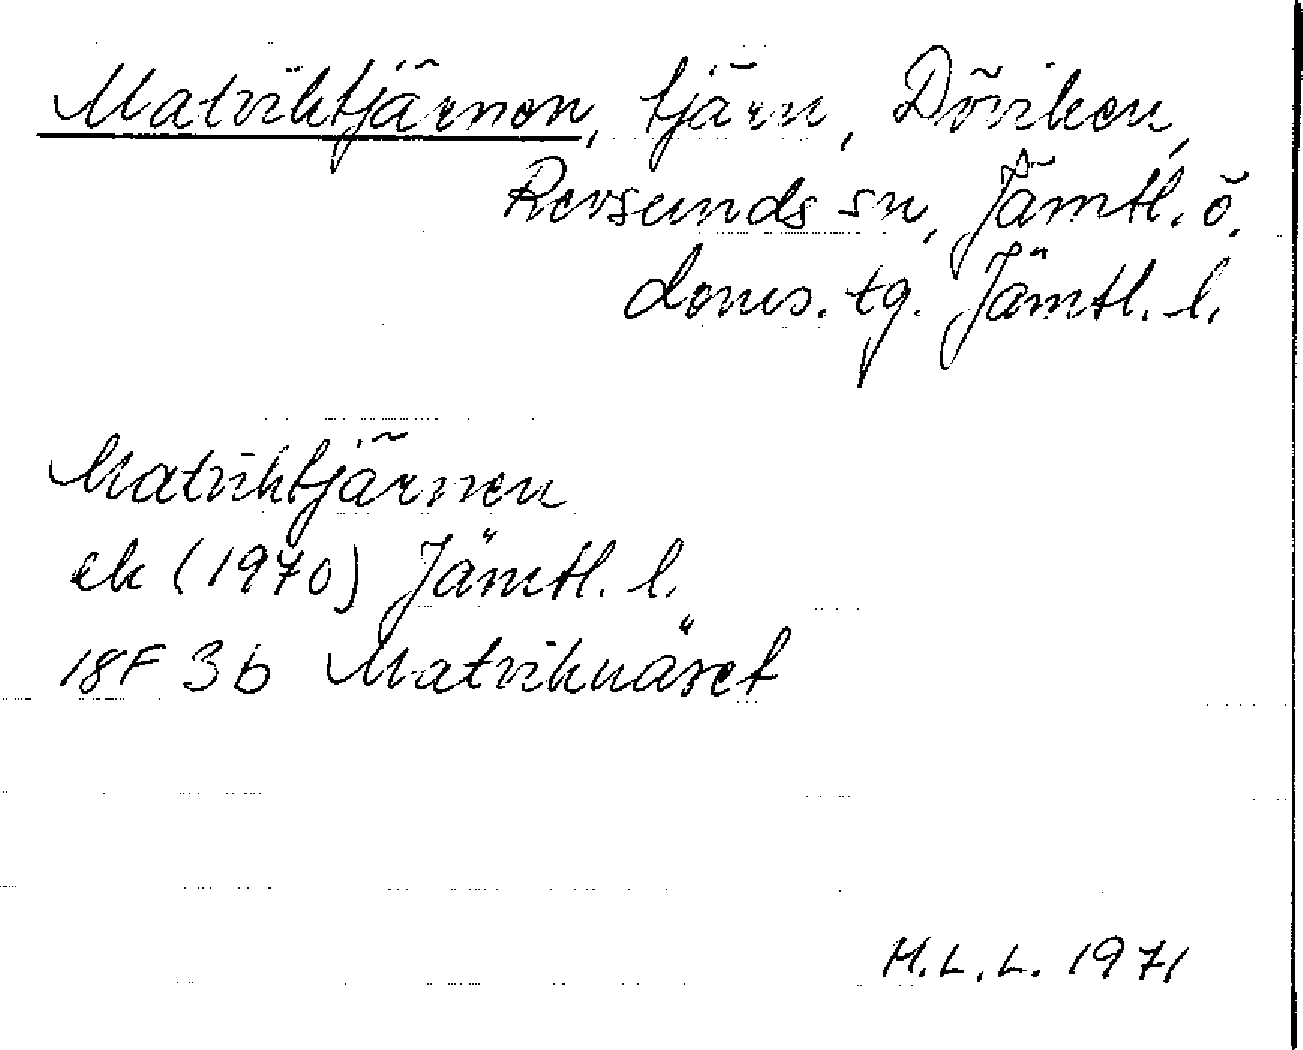 Matviktjärnen, tjärn, Döviken,
Revsunds sn, Jämtl. ö.
doms. tg. Jämtl. l.
Matviktjärnen
ek (1970) Jämtl. l.
18F 3b Matviknäset
H.L.L. 1971